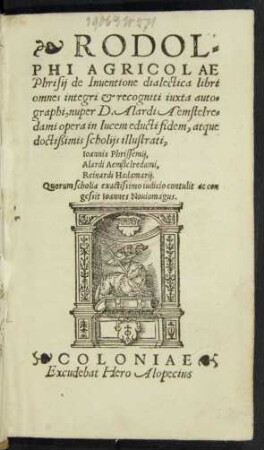 RODOL-
PHI AGRICOLAE
Phrisij de Inuentione dialectica libri
omnes integri & recogniti iuxta auto-
graphi, nuper D. Alardi Aemstelre-
dami opera in lucem educti fidem, atque
doctissimis scholijs illustrati,
Ioannis Phrissemij,
Alardi Aemstelredami,
Reinardi Hadamarij.
Quorum scholia exactissimo iudicio contulit ac con
gessit Ioannes Nouiomagus.
COLONIAE
Excudebat Hero Alopecius